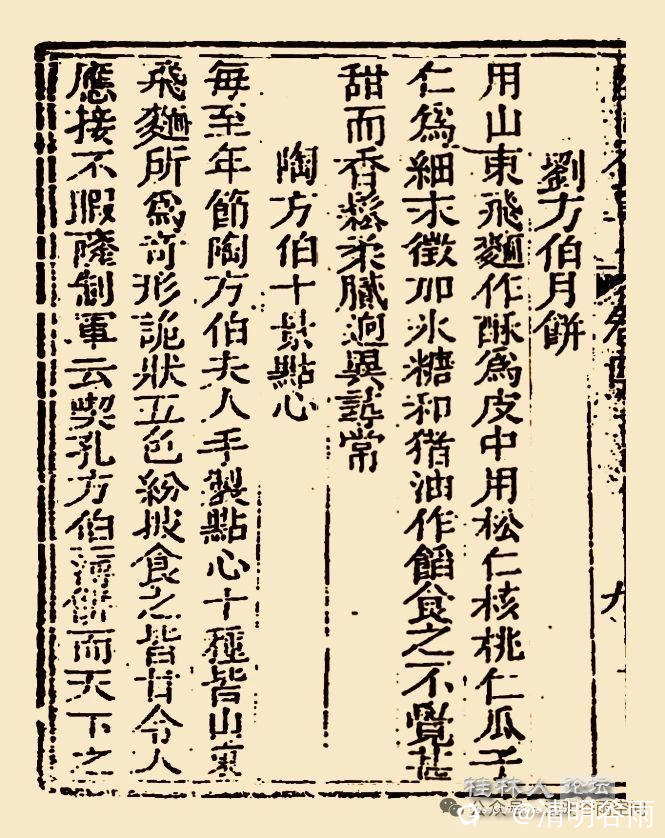 九
劉方伯月餅
用山東飛麵作酥為皮中用松仁核桃仁瓜子
仁為細末微加冰糖和猪油作餡食之不覺甚
甜而香鬆柔膩迥異尋常
陶方伯十景點心
每至年節陶方伯夫人手製點心十種皆山東
飛麵所為奇形詭狀五色紛披食之皆甘令人
應接不暇薩制軍云喫孔方伯薄餅而天下之
桂林人论坛
公众号
@清明谷雨